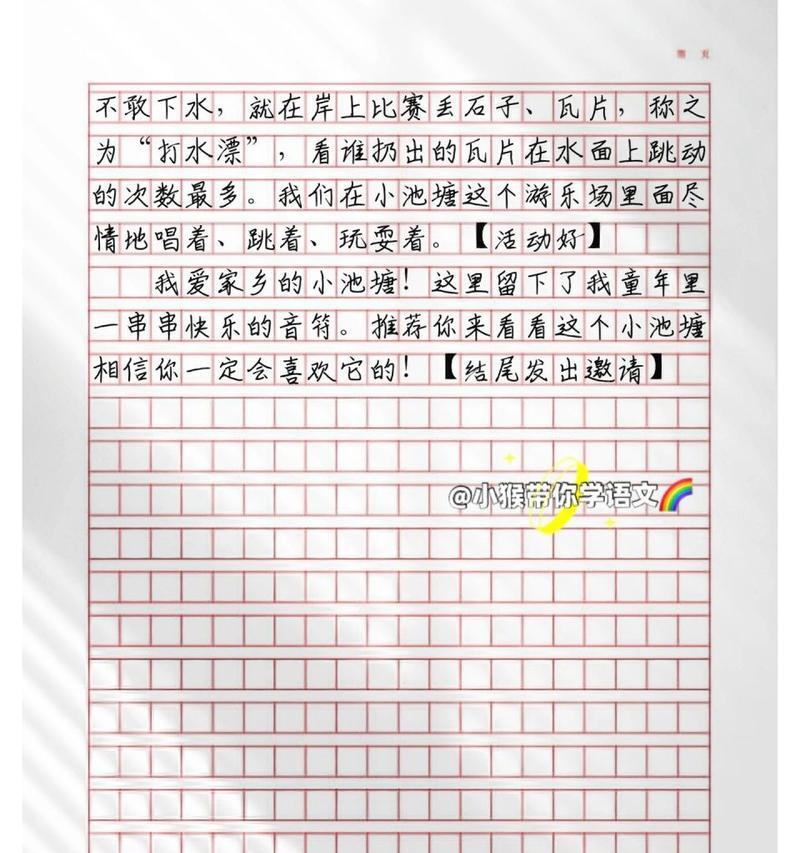 不敢下水，就在岸上比赛丢石子、瓦片，称之
为“打水漂”，看谁扔出的瓦片在水面上跳动
的次数最多。我们在小池塘这个游乐场里面尽
情地唱着、跳着、玩耍着。【活动好】
我爱家乡的小池塘！这里留下了我童年里
一串串快乐的音符。推荐你来看看这个小池塘
相信你一定会喜欢它的！【结尾发出邀请】
@小猴带你学语文🌈